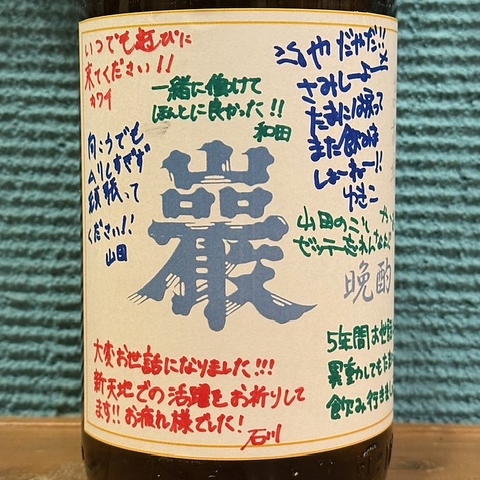 いつでも遊びに
来てください!!
カワイ
一緒に働けて
ほんとに良かった!!
和田
やだやだ!!
さみしーよー
たまには戻って
また飲みま
しょーねー!!
ゆきこ
向こうでも
ムリしすぎず
頑張って
ください!!
山田
巖
山田のこと
ゼッテー忘れんなん
晩酌
大変お世話になりました!!!
新天地での活躍をお祈りして
ます!!お疲れ様でした!
石川
5年間お世話
異動してもた
飲み行きま